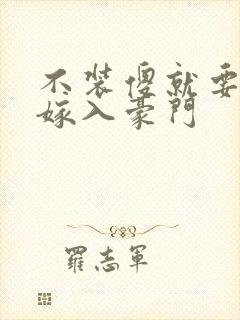 不装傻就要
嫁入豪門
羅志軍